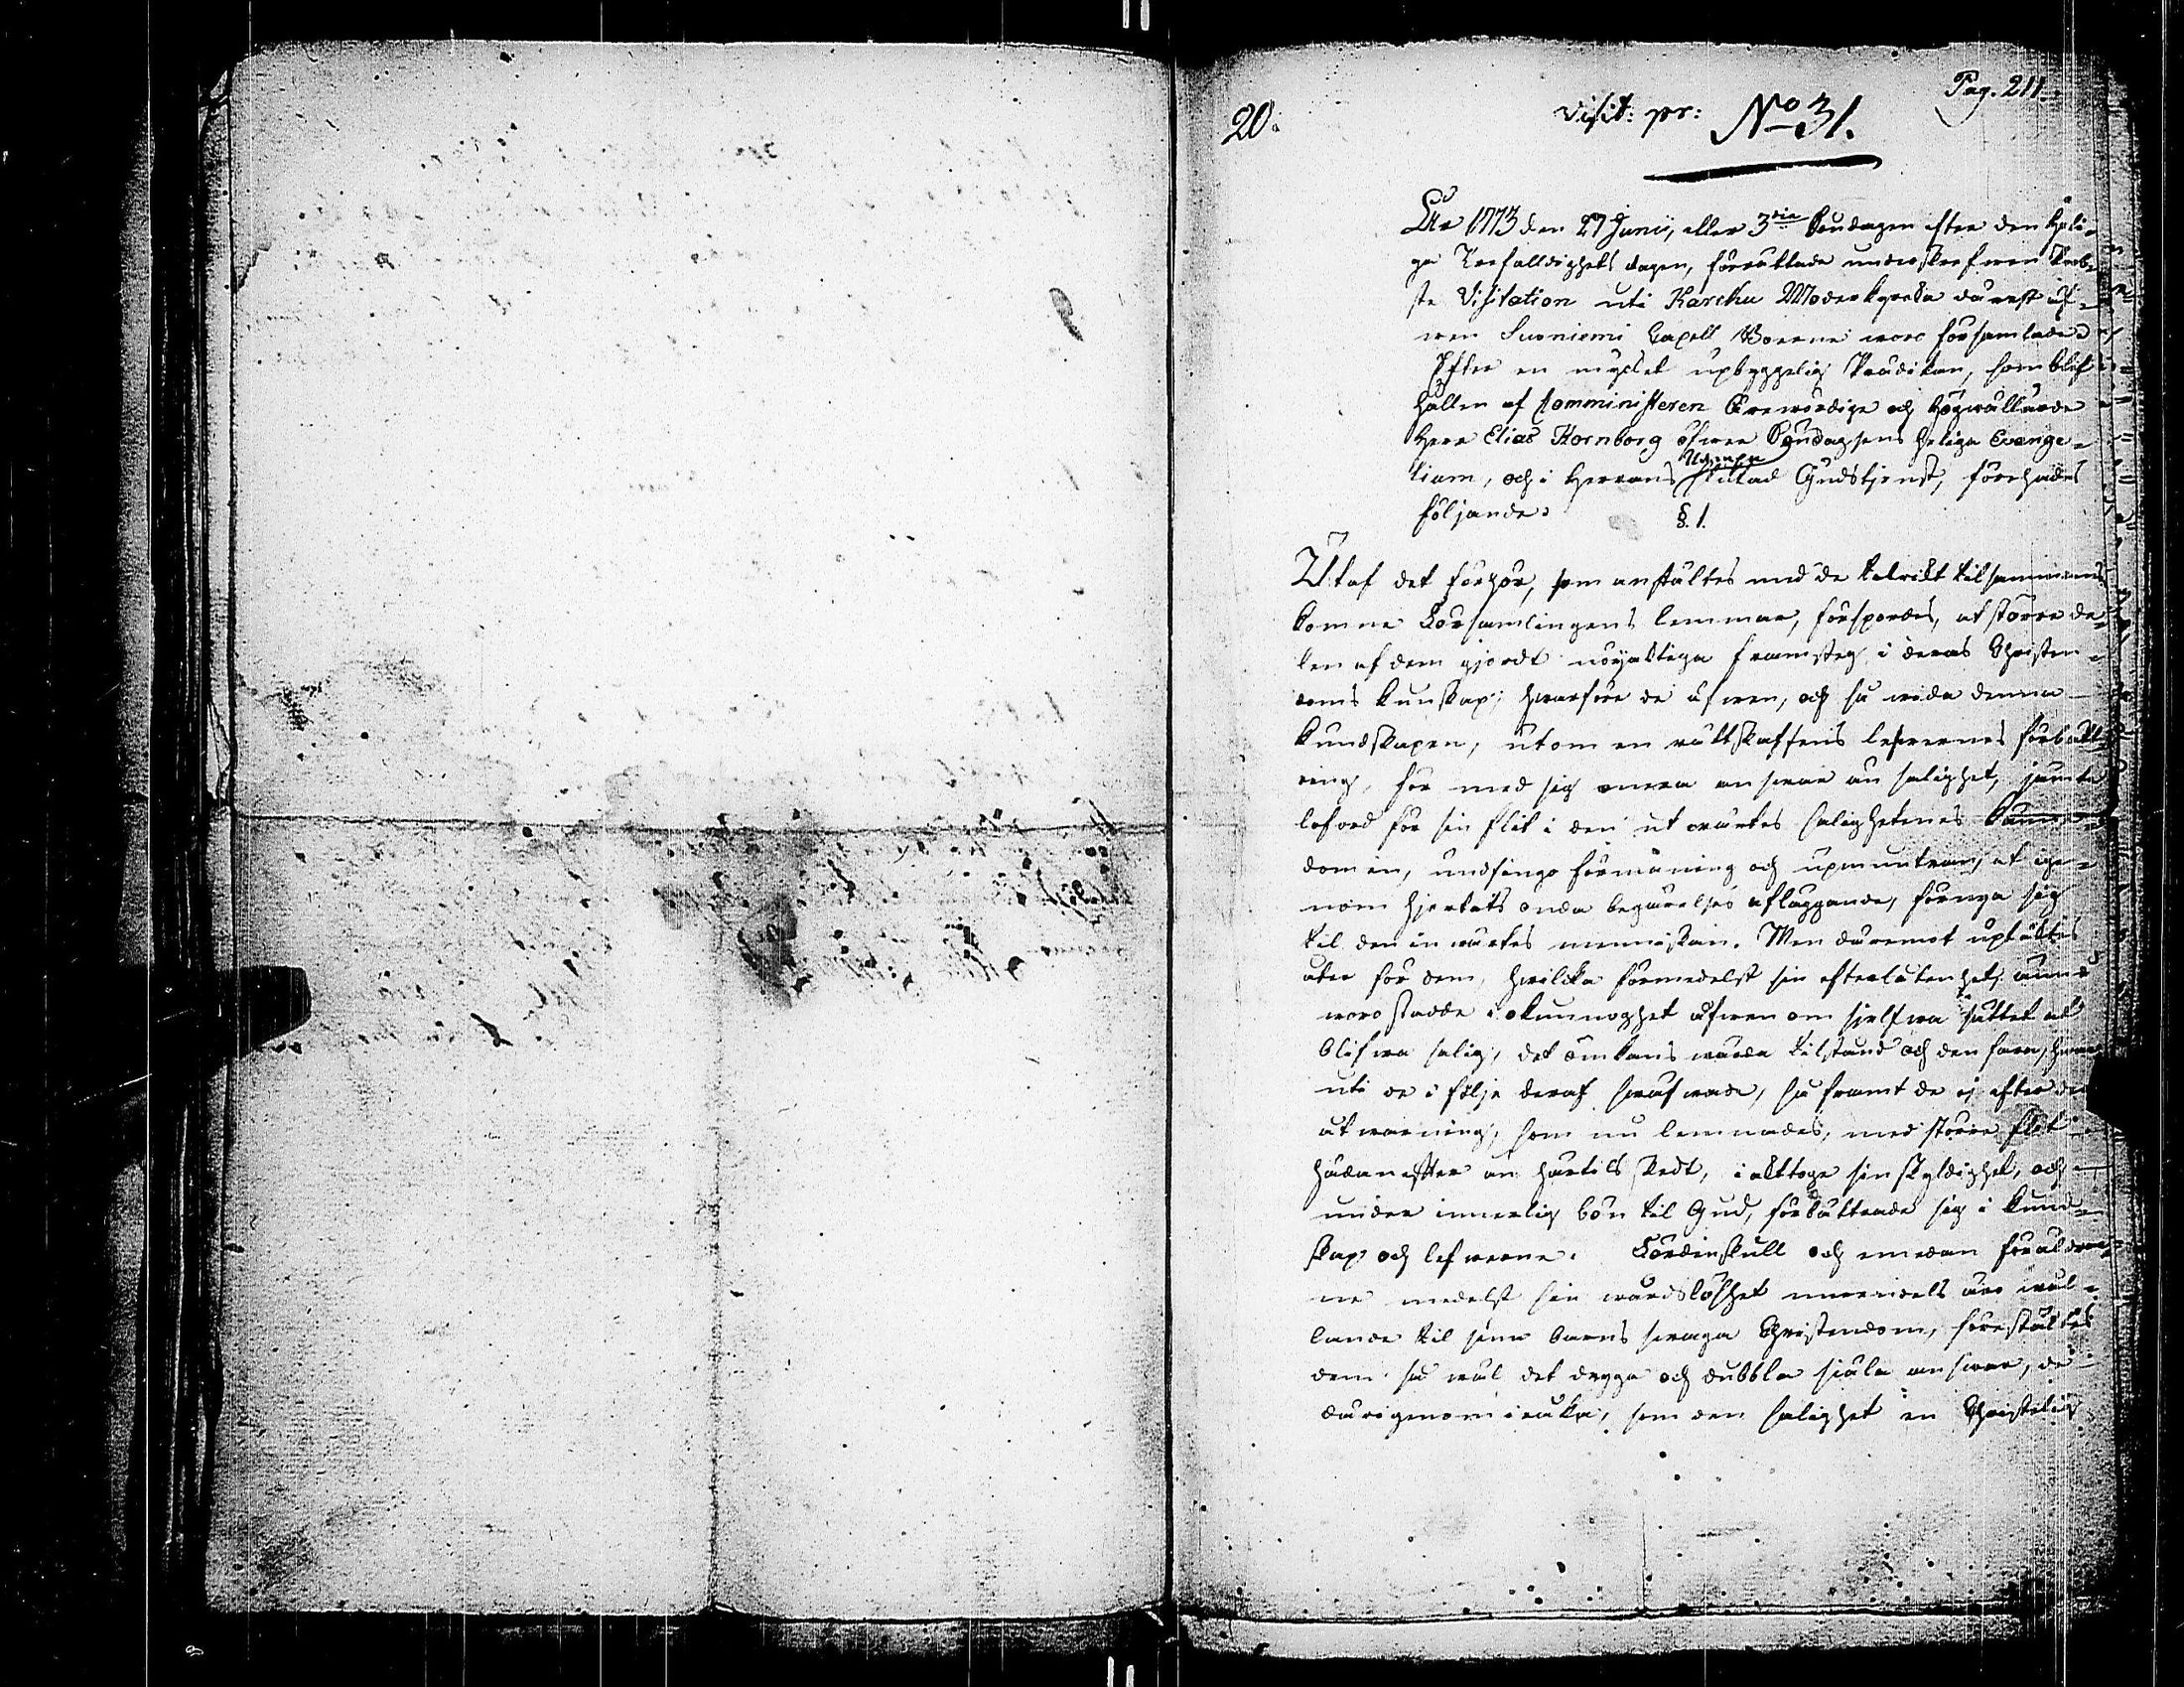 Pag. 211.
20. visit: pr: No 31.
År 1773 den 27 Junii, eller 3die Söndagen efter den Heli-
ga Trefalldighets dagen, förrättade underskrefwen Prob-
ste Visitation uti Karcku Moderkyrcka därest äf-
wen Suoniemi Capell Boerne woro församlade.
Efter en mycket upbyggelig Prädikan, som blef
hållen af Comministeren Ärewördige och Högwällärde
Herr Elias Kornborg öfwer Söndagsens heliga Evange-
lium, och i Herrans Nampn slutad Gudstjenst, förehades
följande:
§. 1.
Utaf det förhör, som anstältes med de talrikt tilsammans
komne Församlingens lemmar, försportes, at större de-
len af dem gjordt nöyaktiga framsteg i deras Christen-
doms kunskap; hwarföre de äfwen, och så wida denna
kundskapen, utom en rättskaffens lefwernes förbätt-
ring, för med sig mera answar än salighet, jämte
loford för sin flit i den utwärtes salighetenes känne-
domen, undfingo förmaning och upmuntran, at ige-
nom hjertats onda begärelses afläggande, förnya sig
til den inwärtes menniskan. Men däremot uptäktes
åter för dem, hwilcka förmedelst sin efterlåtenhet, ännu
woro stadde i okunnoghet äfwen om sjelfwa sättet at
blifwa salig, det ömkans wärda tilstånd och den fara, hwar
uti de i följe deraf swäfwade, så framt de ej efter den
åtwarning, som nu lemnades, med större flit
hädanefter än härtils skedt, i akttoge sin skyldighet, och
under innerlig bön til Gud, förbättrade sig i kund-
skap och lefwerne. Fördenskull och emedan föräldrar-
ne medelst sin wårdslöshet merendels äro wål-
lande til sina barns swaga Christendom, förestältes
dem så wäl det dryga och dubbla siäla answar, de
därigenom iråka, som den salighet en Christelig